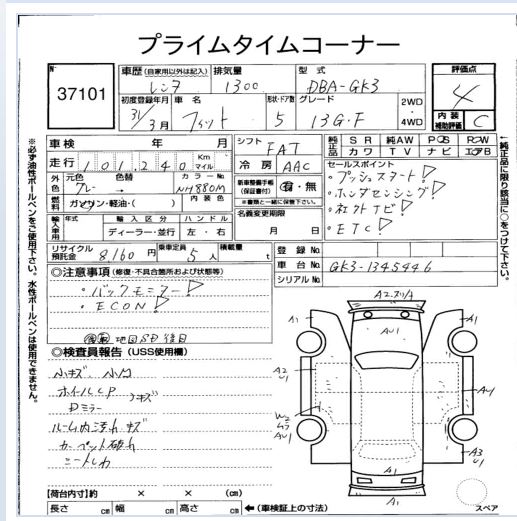 プライムタイムコーナー
No
37101
車歴 (自家用以外は記入) レンタ
排気量 1300
型式 DBA-GK3
評価点 4
初度登録年月 31年3月
車名 フィット
形状・ドア数 5
グレード 13G・F
2WD
4WD
内装補助評価 C
車検 年 月
走行 101240 Km マイル
シフト FAT
冷房 AAC
純正品 SR 純AW PS PW
カワ TV ナビ エアB
外色 元色 グレー → 色替 カラーNo NH880M
燃料 ガソリン・軽油・( ) 内装色
新車整備手帳 (保証書付) 有・無
※書類と一緒に保管下さい。
セールスポイント
・プッシュスタート!
・ホンダセンシング!
・社外ナビ!
・ETC!
輸入車用 年式 輸入区分 ハンドル
ディーラー・並行 左・右
名義変更期限
月 日
リサイクル預託金 8,160円
乗車定員 5人
積載量 t
登録No
車台No GK3-1345446
シリアルNo
◎注意事項 (修復・不具合箇所および状態等)
・バックモニター!
・ECON!
地図SD後日
◎検査員報告 (USS使用欄)
小キズ 小凹
ホイールCP
Dミラー キズ
ルーム内汚れ キズ
カーペット破れ
シートしわ
A1
A1
AU1
A2
U1
AU1
W2
AU1
A3
U1
A1
スペア
【荷台内寸】約 × × (cm)
長さ cm 幅 cm 高さ cm
← (車検証上の寸法)
※必ず油性ボールペンをご使用下さい。水性ボールペンは使用できません。
↑純正品に限り該当に○をつけて下さい。